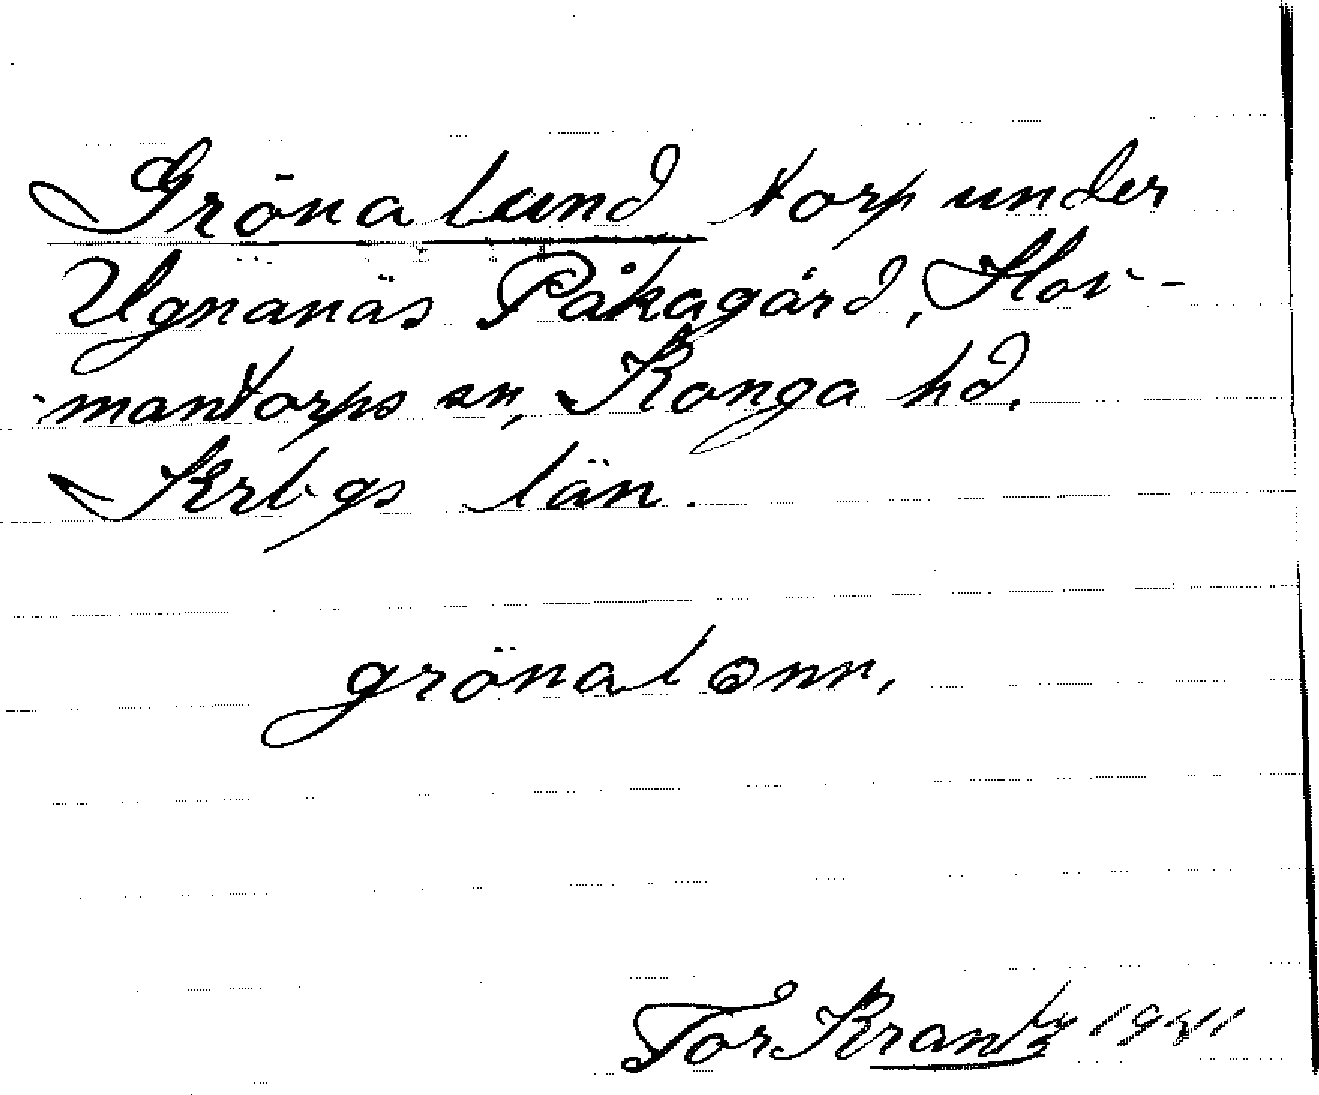 Grönalund torp under
Ugnanäs Påkagård, Hor-
mantorps sn, Konga hd.
Krbgs län.
grönalonn,
Tor Krantz 1931